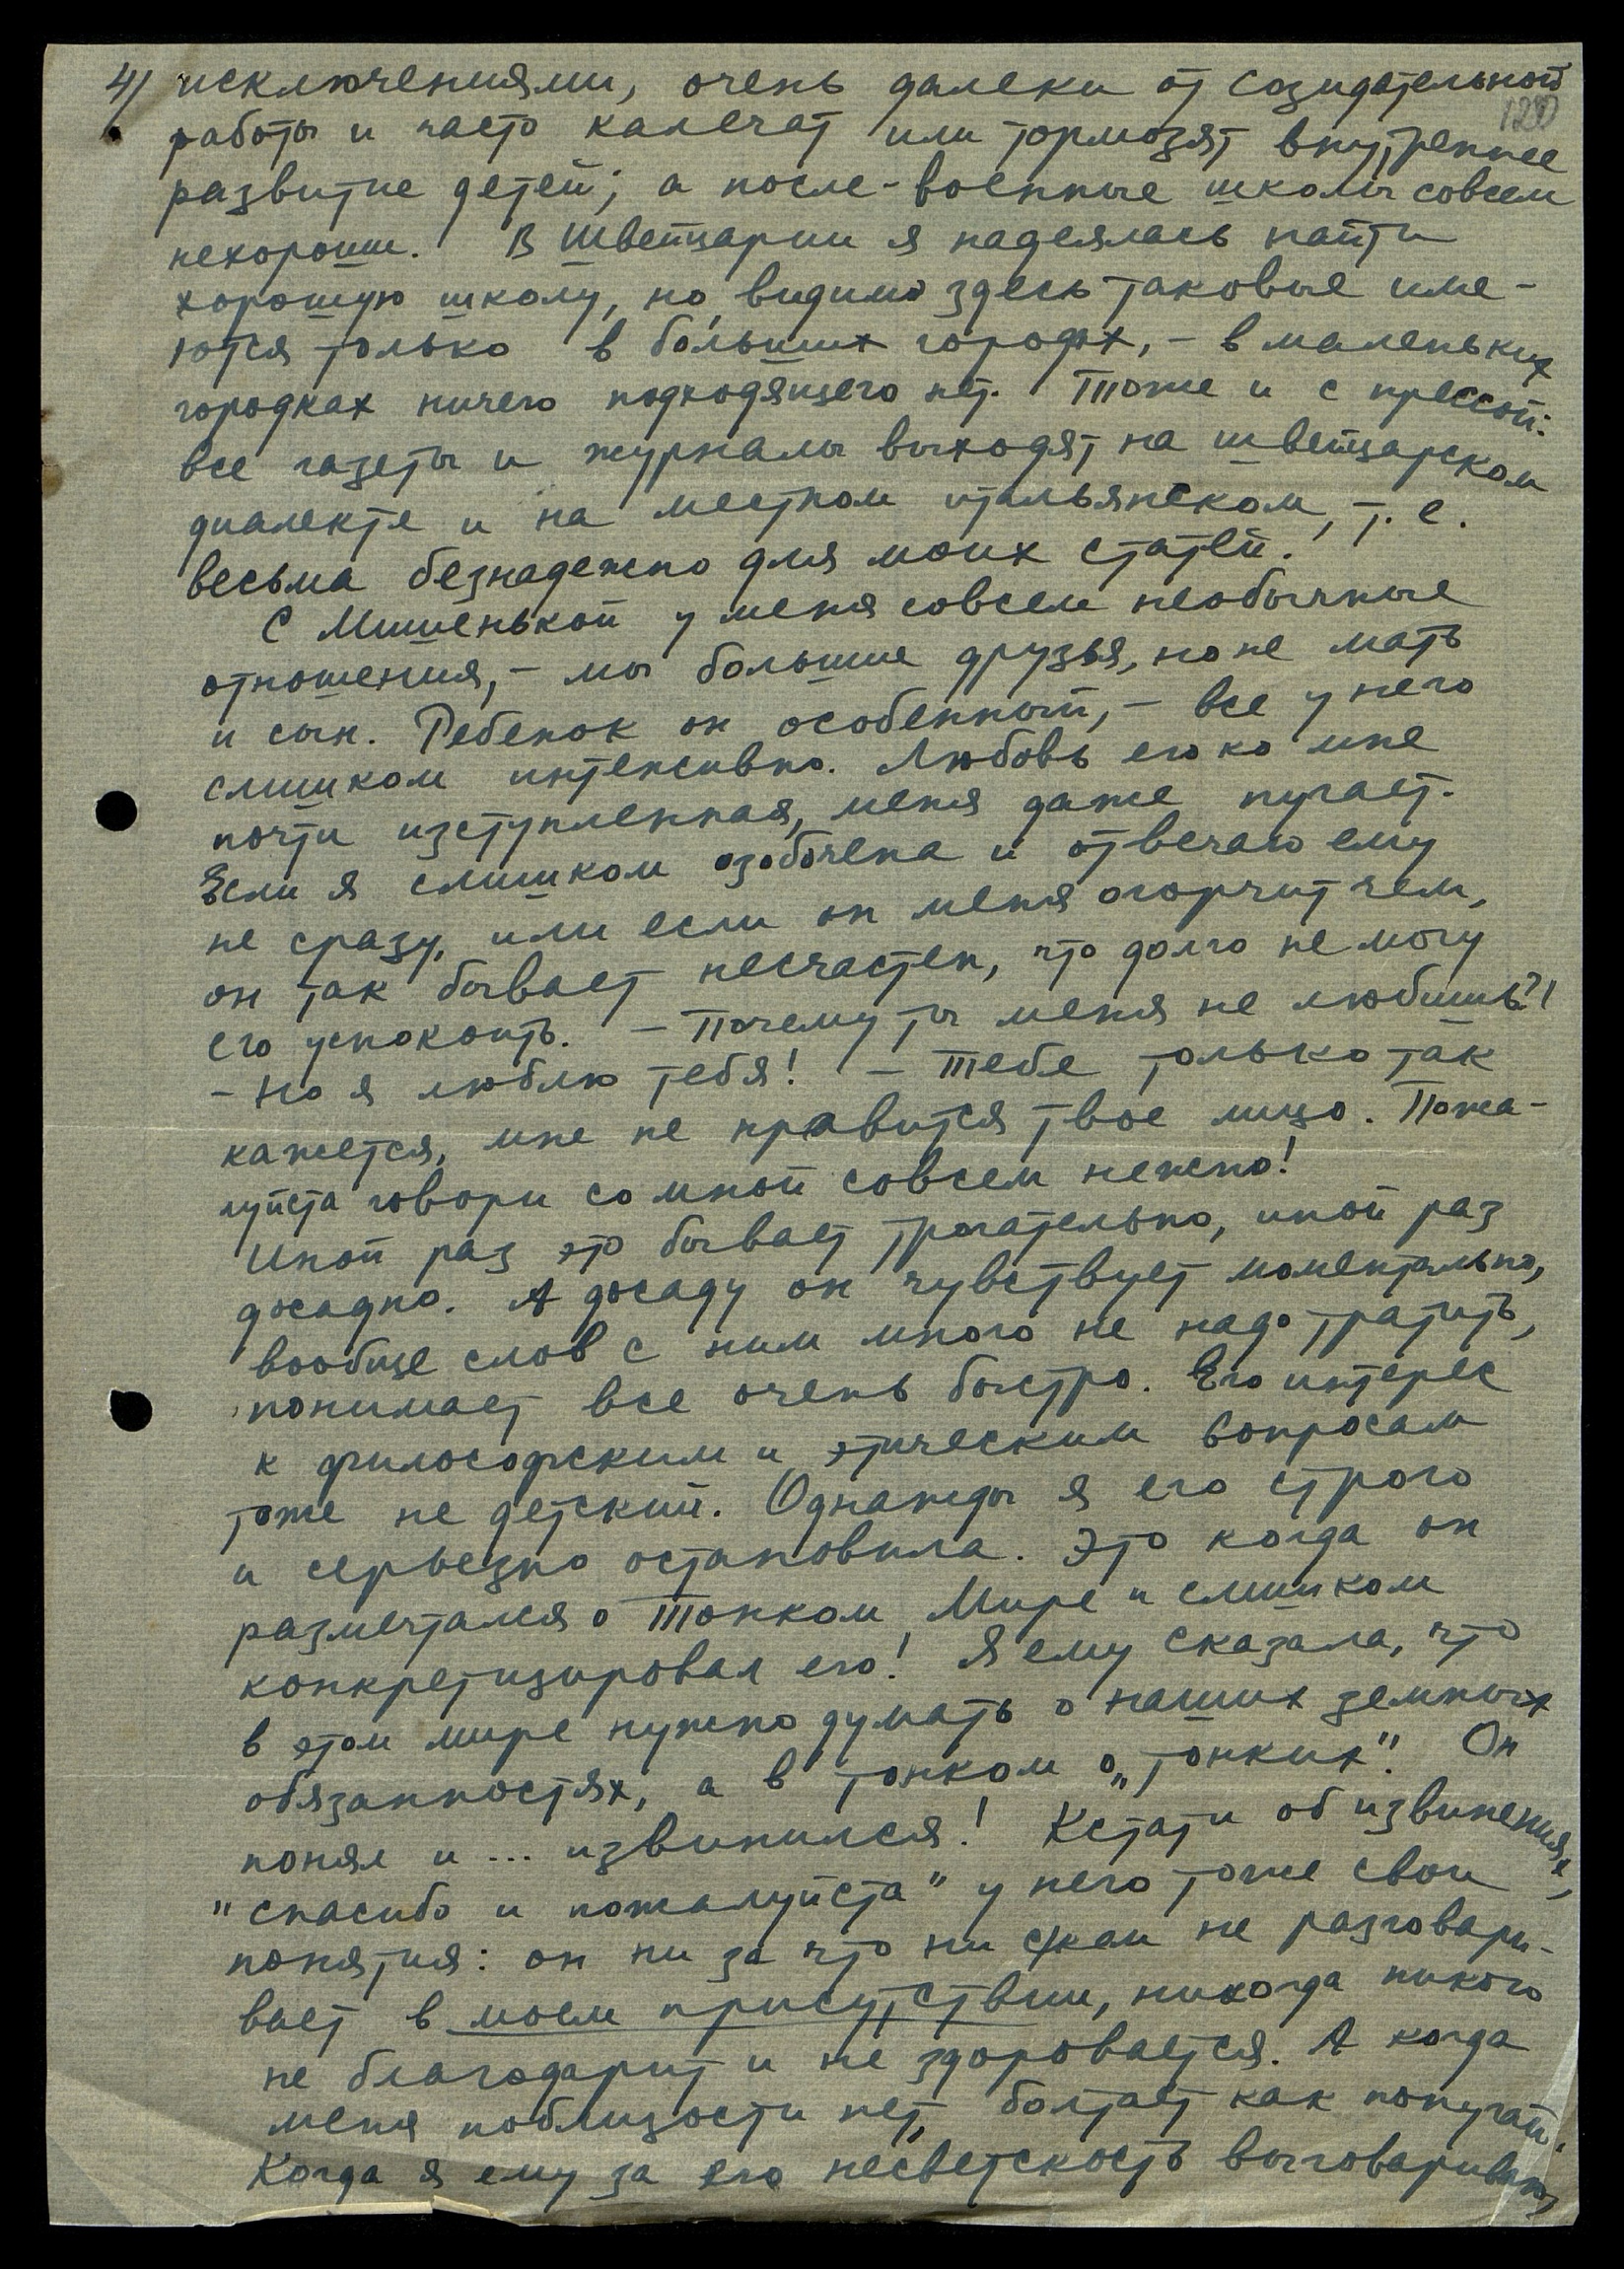 4/ исключениями, очень далеки от созидательной
120
работы и часто калечат или тормозят внутреннее
развитие детей; а после-военные школы совсем
нехороши. В Швейцарии я надеялась найти
хорошую школу, но, видимо здесь таковые име-
ются только в больших городах, - в маленьких
городках ничего подходящего нет. Тоже и с прессой:
все газеты и журналы выходят на швейцарском
диалекте и на местном итальянском, т. е.
весьма безнадежно для моих статей.
С Мишенькой у меня совсем необычные
отношения, - мы большие друзья, но не мать
и сын. Ребенок он особенный, - все у него
слишком интенсивно. Любовь его ко мне
почти изступленная, меня даже пугает.
Если я слишком озабочена и отвечаю ему
не сразу, или если он меня огорчит чем,
он так бывает несчастен, что долго не могу
его успокоить. - Почему ты меня не любишь?!
- Но я люблю тебя! - Тебе только так
кажется, мне не нравится твое лицо. Пожа-
луйста говори со мной совсем нежно!
Иной раз это бывает трогательно, иной раз
досадно. А досаду он чувствует моментально,
вообще слов с ним много не надо тратить,
понимает все очень быстро. Его интерес
к философским и этическим вопросам
тоже не детский. Однажды я его строго
и серьезно остановила. Это когда он
размечтался о Тонком Мире и слишком
конкретизировал его! Я ему сказала, что
в этом мире нужно думать о наших земных
обязанностях, а в тонком о „тонких". Он
понял и ... извинился! Кстати об извинениях,
"спасибо и пожалуйста" у него тоже свои
понятия: он ни за что ни с кем не разговари-
вает в моем присутствии, никогда никого
не благодарит и не здоровается. А когда
меня поблизости нет, болтает как попугай.
Когда я ему за его несветскость выговариваю,